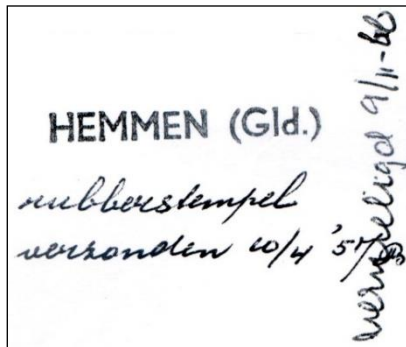 HEMMEN (Gld.)
rubberstempel
verzonden 10/4 '57
vernietigd 9/11-66